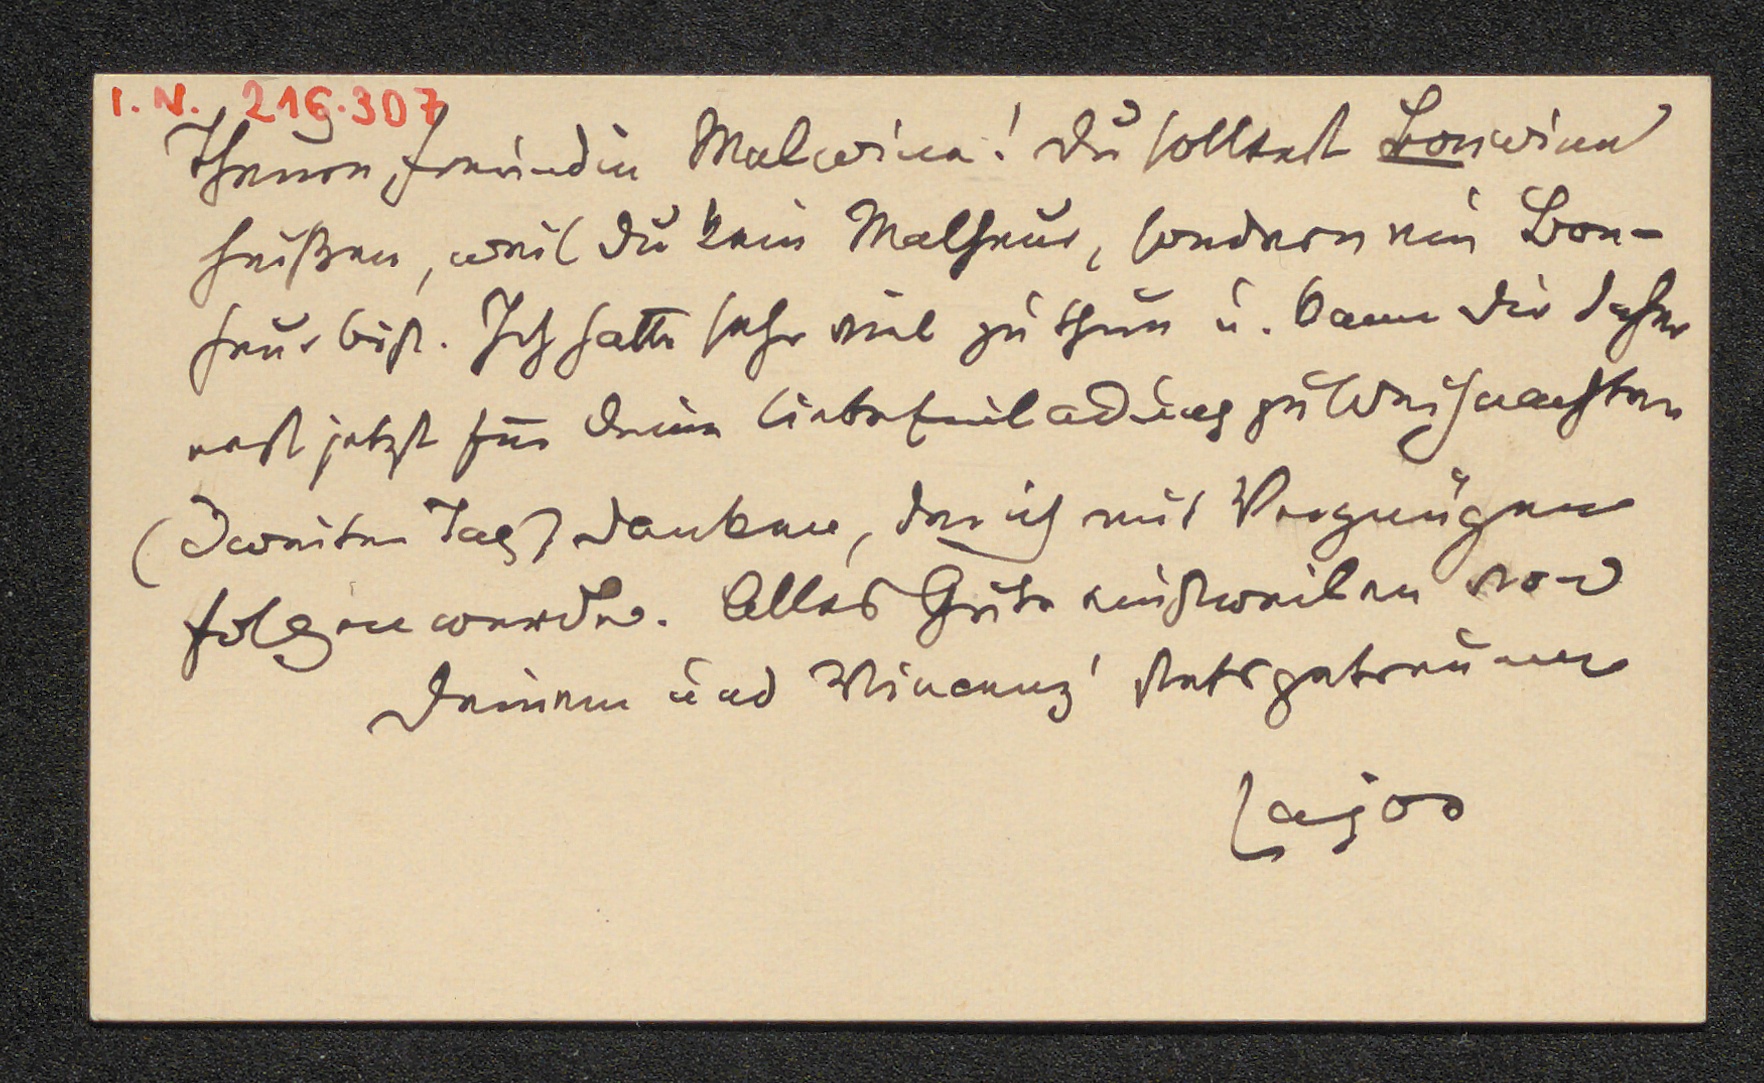 I. N. 216.307
Theure Freundin Malwine! Du solltest Bonwine
heißen, weil Du kein Malheur, sondern ein Bon-
heur bist. Ich hatte sehr viel zu thun u. kann Dir daher
erst jetzt für Deine liebe Einladung zu Weihnachten
(Zweiter Tag) danken, der ich mit Vergnügen
folgen werde. Alles Gute einstweilen von
Deinem und Vincenz' stetsgetreuen
Lajos